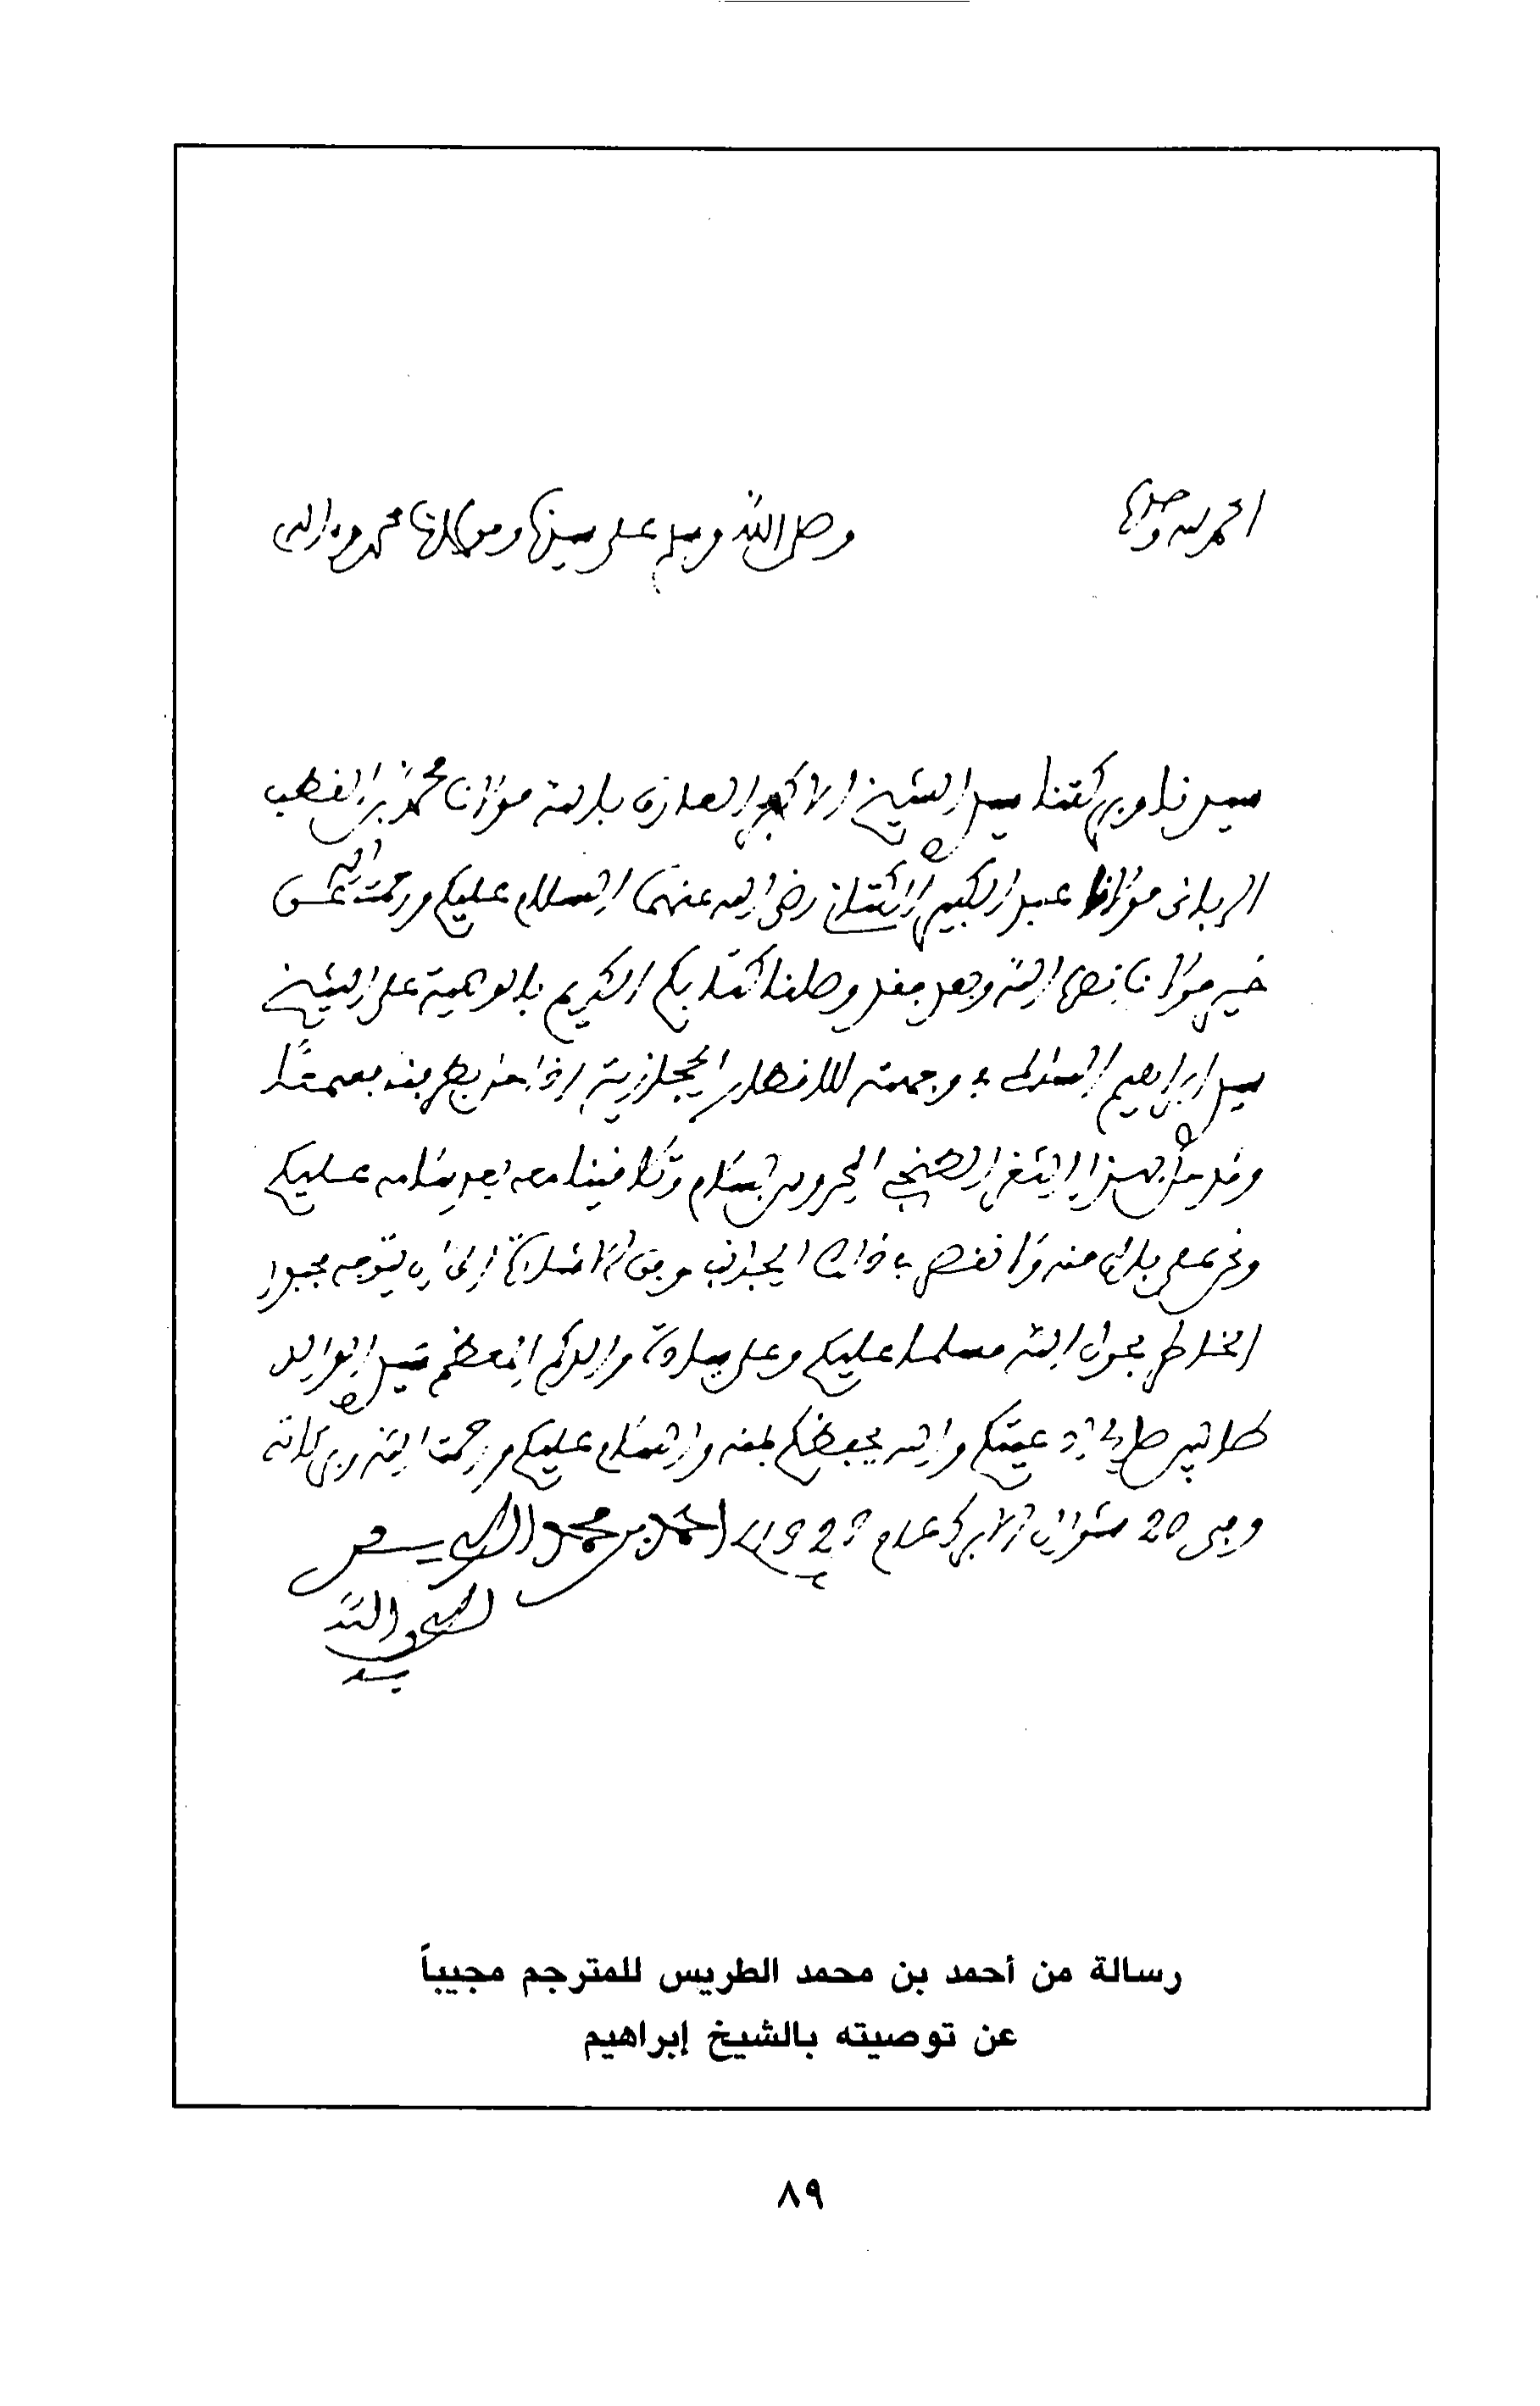 الحمد لله وحده
وصلى الله وسلم على سيدنا ومولانا محمد وءاله
سيدنا وبركتنا سيدي الشيخ الاكبر العارف بالله مولانا محمد بن القطب
الرباني مولانا عبد الكبير الكتاني رضي الله عنهما السلام عليكم ورحمت الله عن
خير مولانا نصره الله وبعد فقد وصلنا كتابكم الكريم بالوصية على الشيخ
سيدي ابراهيم في وجهته للاقطار الحجازية اذا مر بطريقه
وقد حل بهذا الثغر الطنجي المحروس بسلام وتلاقينا معه بعد سلامه عليكم
ونحن على بال منه ولا نقصر في ذلك الجانب وفق الاشارة الى ان يتوجه مجبور
الخاطر بحول الله مسلما عليكم وعلى سيادة والدكم المعظم سيدي
طالبين صالح ادعيتكم والله يحفظكم بمنه والسلام عليكم ورحمت الله وبركاته
وفي 20 شوال الابرك عام احمد بن محمد الطريس
الله
رسالة من أحمد بن محمد الطريس للمترجم مجيباً
عن توصيته بالشيخ إبراهيم
٨٩